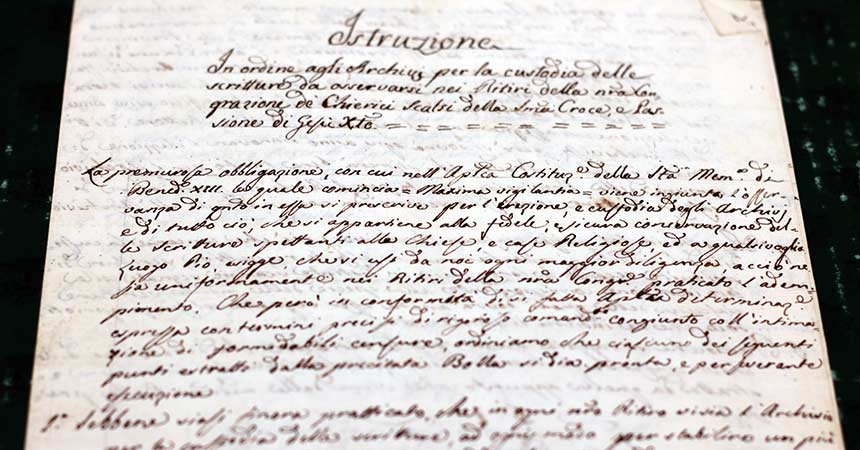 Istruzione
In ordine agli Archivij per la custodia delle
scritture da osservarsi nei Ritiri della nra Con-
gregazione de Chierici Scalsi della Sma Croce, e Pas-
sione di Gesù Xto.
La premurosa obbligazione, con cui nell'Aplca Costituze della Sta Meme di
Bendo XIII. la quale comincia = Maxima vigilantia = viene ingiunta l'osser-
vanza di qnto in essa si prescrive per l'erezione, e custodia degli Archivj
e di tutto ciò, che si appartiene alla fedele, e sicura conservazione del-
le scritture spettanti alle Chiese, e case Religiose, ed a qualsivoglia
Luogo Pio, esigge, che si usi da noi ogni maggior diligenza acciò ne
sia uniformamente nei Ritiri della nra Congne praticato l'adem-
pimento. Che però in conformità di si fatta Aplca determinaze
espressa con termini precisi di rigoroso comando congiunto coll'intima-
zione di formidabili censure, ordiniamo che ciascuno dei seguenti
punti estratto dalla precitata Bolla si dia pronta, e perseverante
esecuzione
1° Sebbene siasi finora pratticato, che in ogni nro Ritiro visia l'Archivio
per la custodia delle scritture, ad ogni modo per stabilire un più